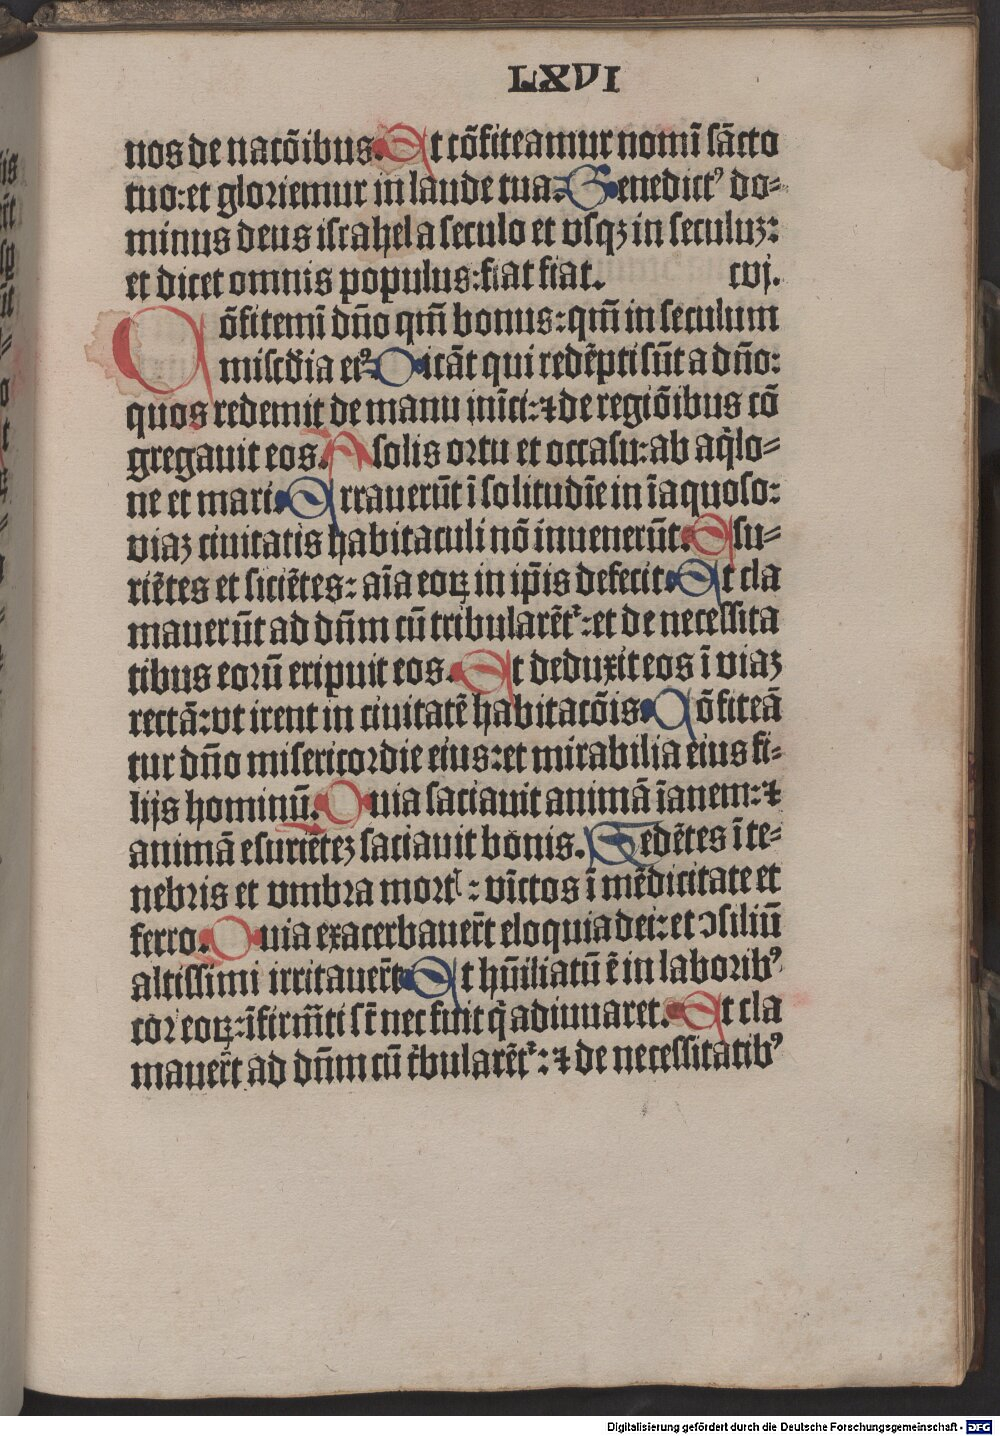 LXVI
nos de nacõibus. Et cõfiteamur nomĩ sãcto
tuo: et gloriemur in laude tua. Benedictꝰ do⸗
minus deus israhel a seculo et vsqꝫ in seculuꝫ:
et dicet omnis populus: fiat fiat. cvj.
Cõfitemĩ dño qm̃ bonus: qm̃ in seculum
miscd̃ia eiꝰ. Dicãt qui redẽpti sũt a dño:
quos redemit de manu inĩci: ⁊ de regiõibus cõ
gregauit eos. A solis ortu et occasu: ab aq̃lo⸗
ne et mari. Errauerũt ĩ solitudĩe in ĩaquoso:
viaꝫ ciuitatis habitaculi nõ inuenerũt. Esu⸗
riẽtes et siciẽtes: aĩa eoꝝ in ip̃is defecit. Et cla
mauerũt ad dñm cũ tribularẽt᷑: et de necessita
tibus eorũ eripuit eos. Et deduxit eos ĩ viaꝫ
rectã: vt irent in ciuitatẽ habitacõis. Cõfiteã
tur dño misericordie eius: et mirabilia eius fi⸗
lijs hominũ. Quia saciauit animã ĩanem: ⁊
animã esuriẽteꝫ saciauit bonis. Sedẽtes ĩ te⸗
nebris et vmbra mortꝭ: vĩctos ĩ mẽdicitate et
ferro. Quia exacerbauer̃t eloquia dei: et ↄsiliũ
altissimi irritauer̃t. Et hũiliatũ ẽ in laboribꝰ
cor eoꝝ: ĩfirm̃ti st̃ nec fuit q̃ adiuuaret. Et cla
mauer̃t ad dñm cũ t̃bularẽt᷑: ⁊ de necessitatibꝰ
Digitalisierung gefördert durch die Deutsche Forschungsgemeinschaft - DFG